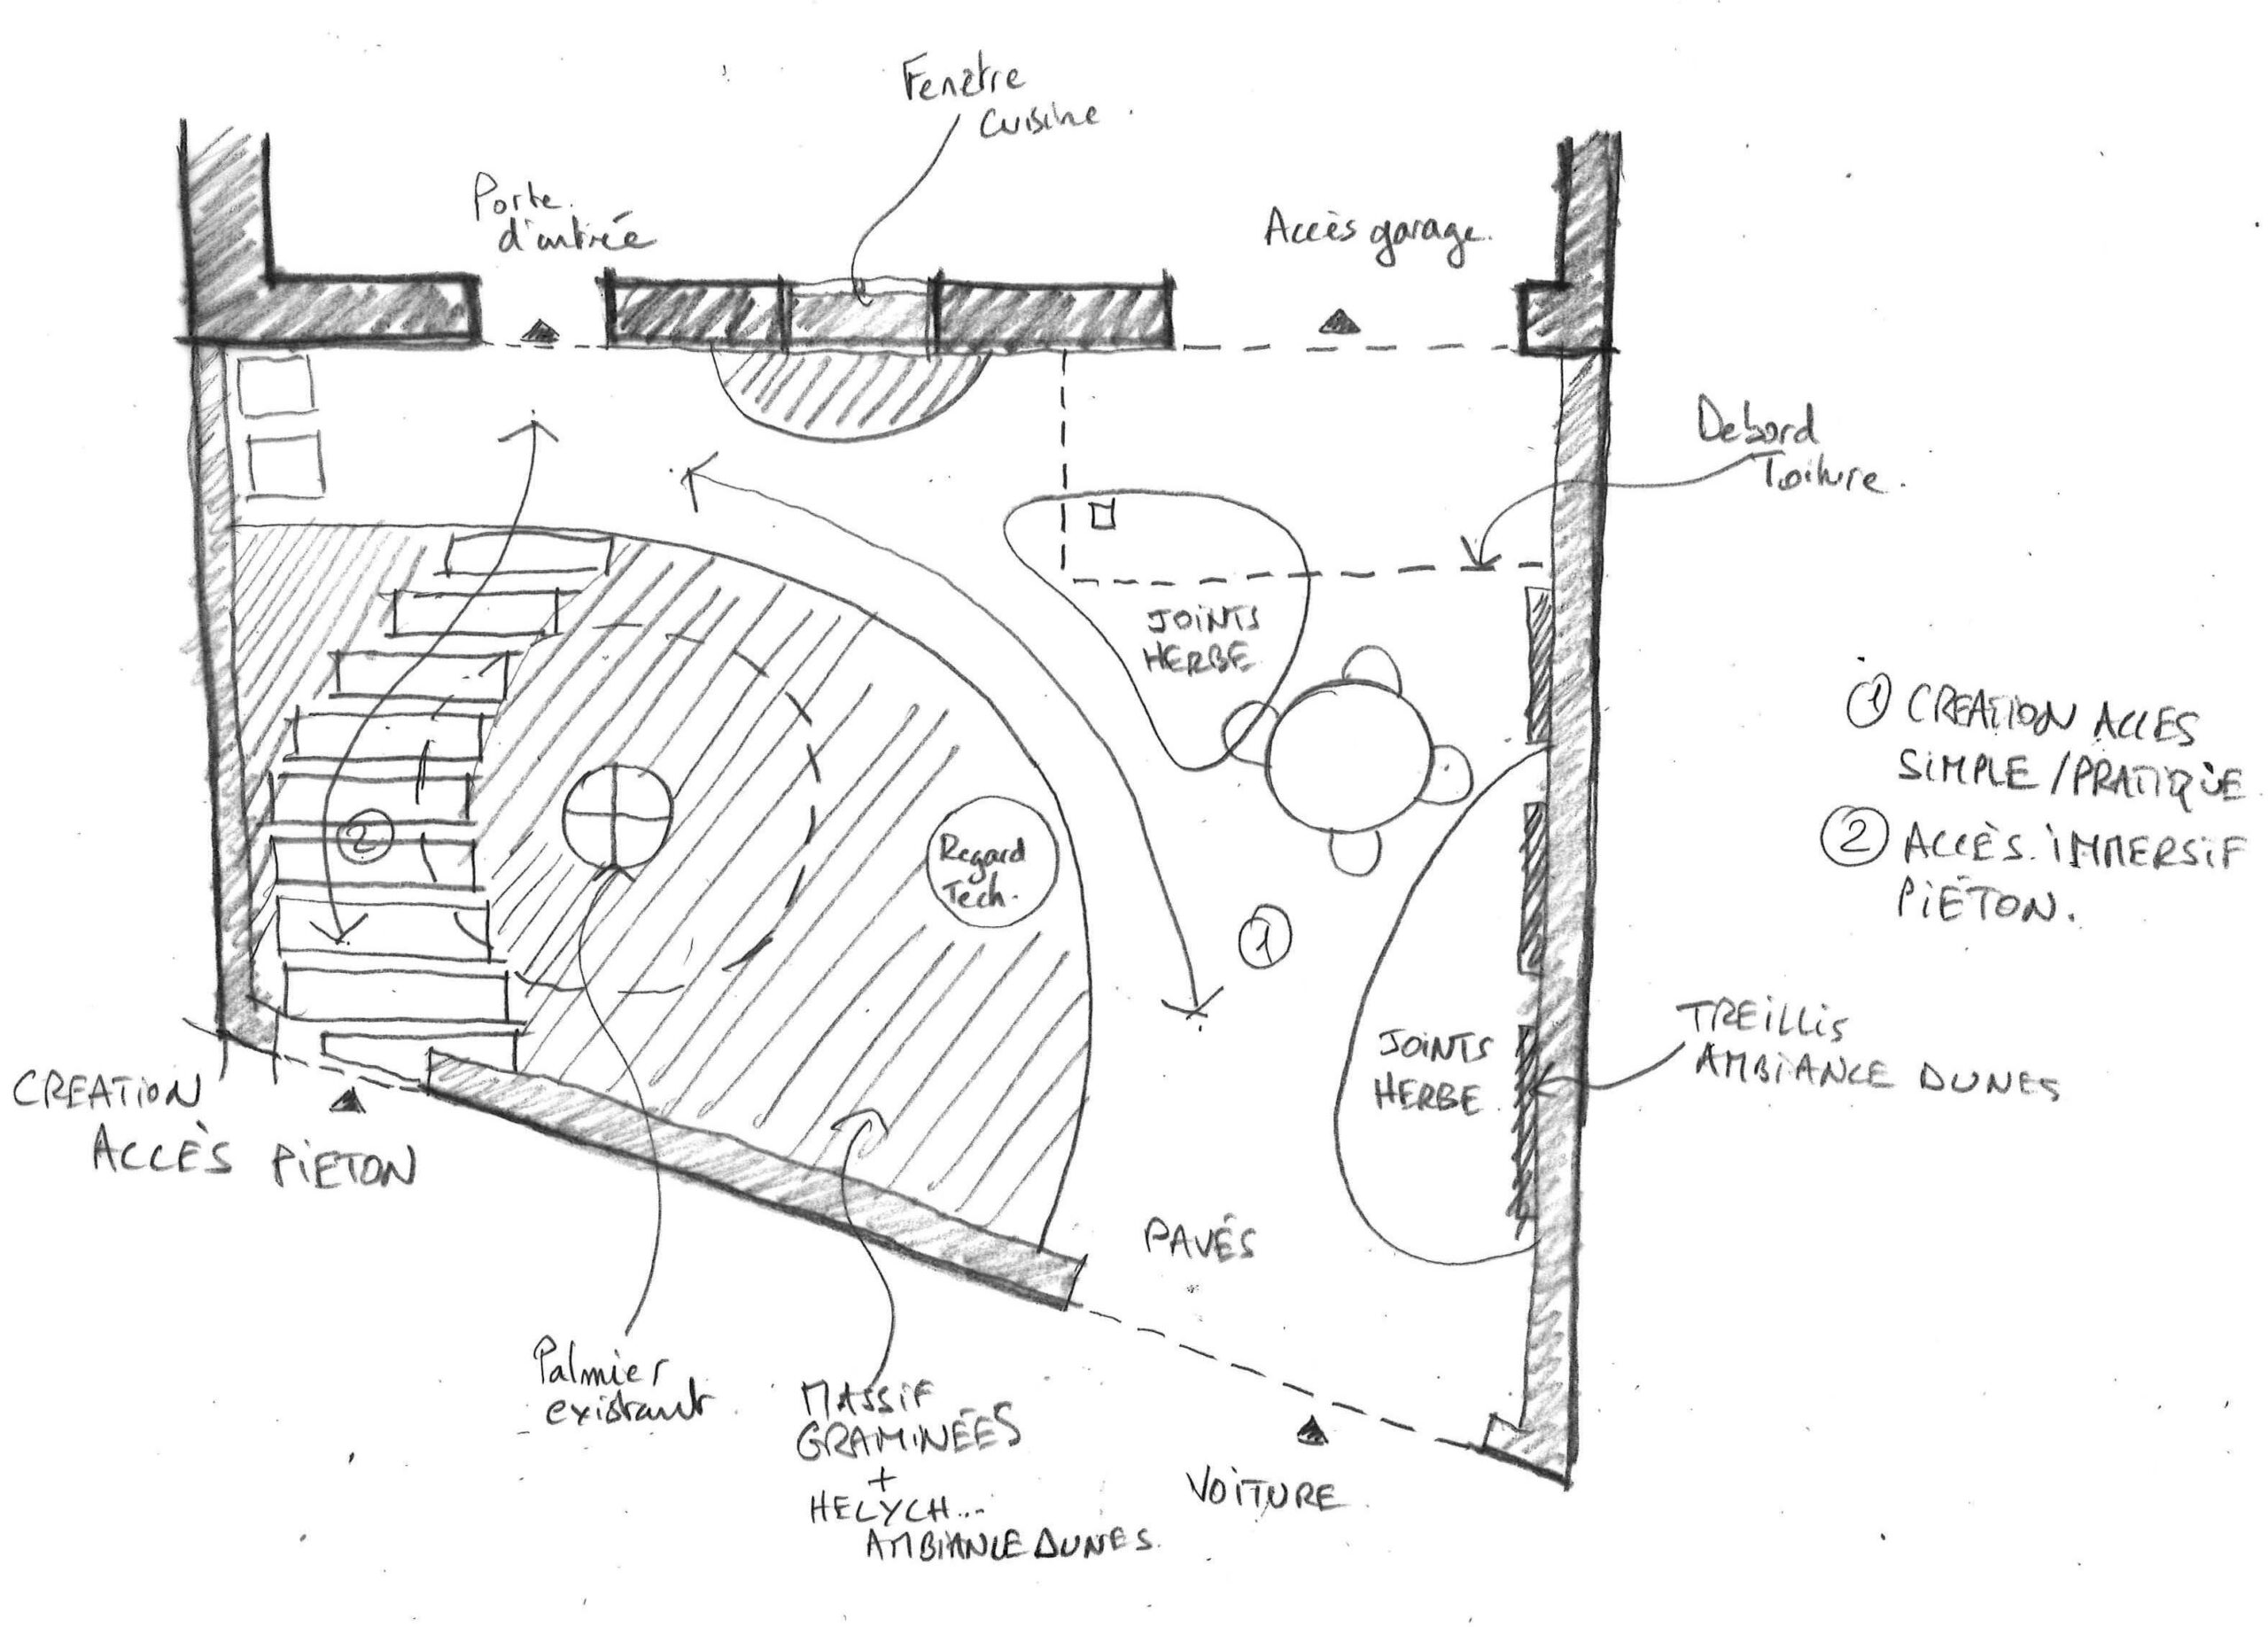 Fenêtre
Cuisine.
Porte.
d'entrée
Accès garage.
Debord
Toiture.
JOINTS
HERBE
① CREATION ACCES
SIMPLE / PRATIQUE.
② ACCÈS IMMERSIF
PIÉTON.
②
Regard
Tech.
①
JOINTS
HERBE.
TREILLIS
AMBIANCE DUNES
CREATION
ACCÈS PIÉTON
PAVÉS
Palmier
existant
MASSIF
GRAMINÉES
+
HELYCH...
AMBIANCE DUNES.
VOITURE